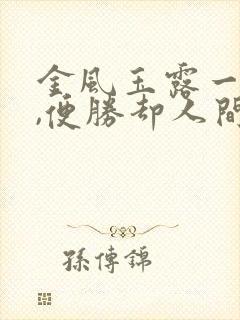 金風玉露一
,便勝却人間
孫傳錦